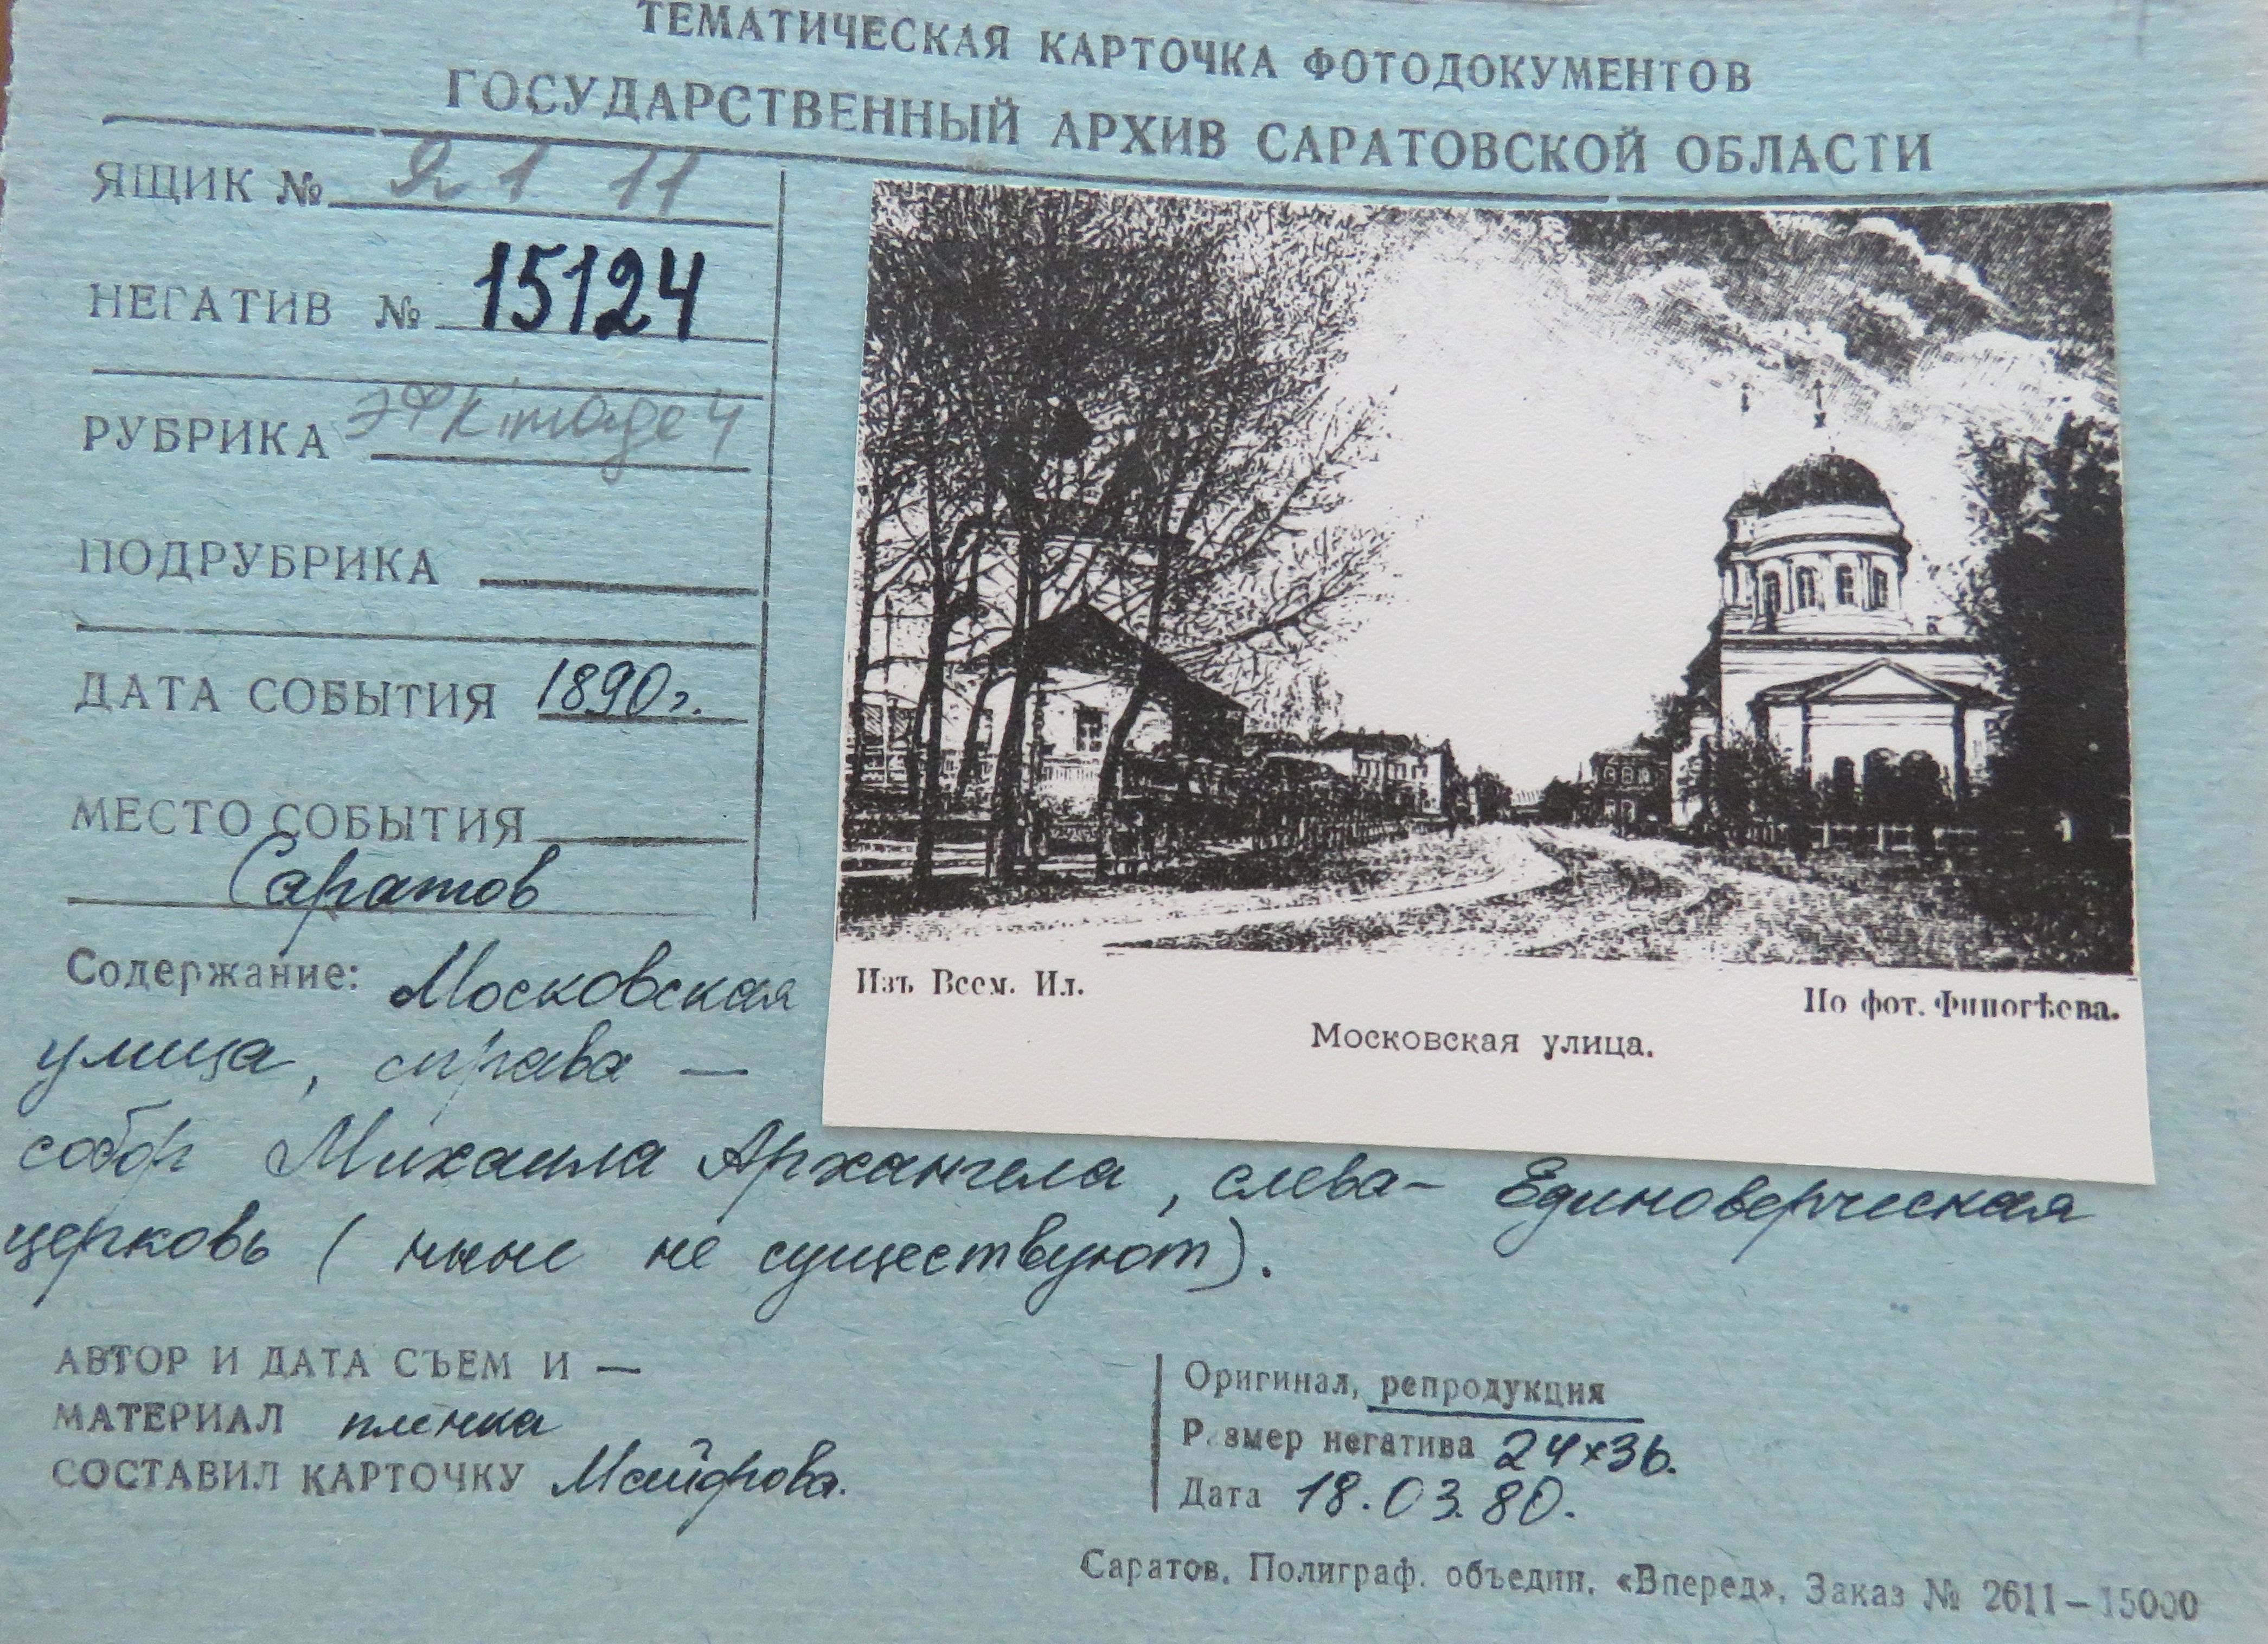 ТЕМАТИЧЕСКАЯ КАРТОЧКА ФОТОДОКУМЕНТОВ
ГОСУДАРСТВЕННЫЙ АРХИВ САРАТОВСКОЙ ОБЛАСТИ
ЯЩИК № 11
НЕГАТИВ № 15124
РУБРИКА
ПОДРУБРИКА
ДАТА СОБЫТИЯ 1890 г.
МЕСТО СОБЫТИЯ
Саратов
Содержание: Московская
улица, справа —
собор Михаила Архангела, слева - Единоверческая
церковь (ныне не существуют).
Изъ Всем. Ил.
По фот. Финогѣева.
Московская улица.
АВТОР И ДАТА СЪЕМ И —
МАТЕРИАЛ пленка
СОСТАВИЛ КАРТОЧКУ
Оригинал, репродукция
Размер негатива 24х36.
Дата 18.03.80.
Саратов, Полиграф. объедин, «Вперед», Заказ № 2611—15000